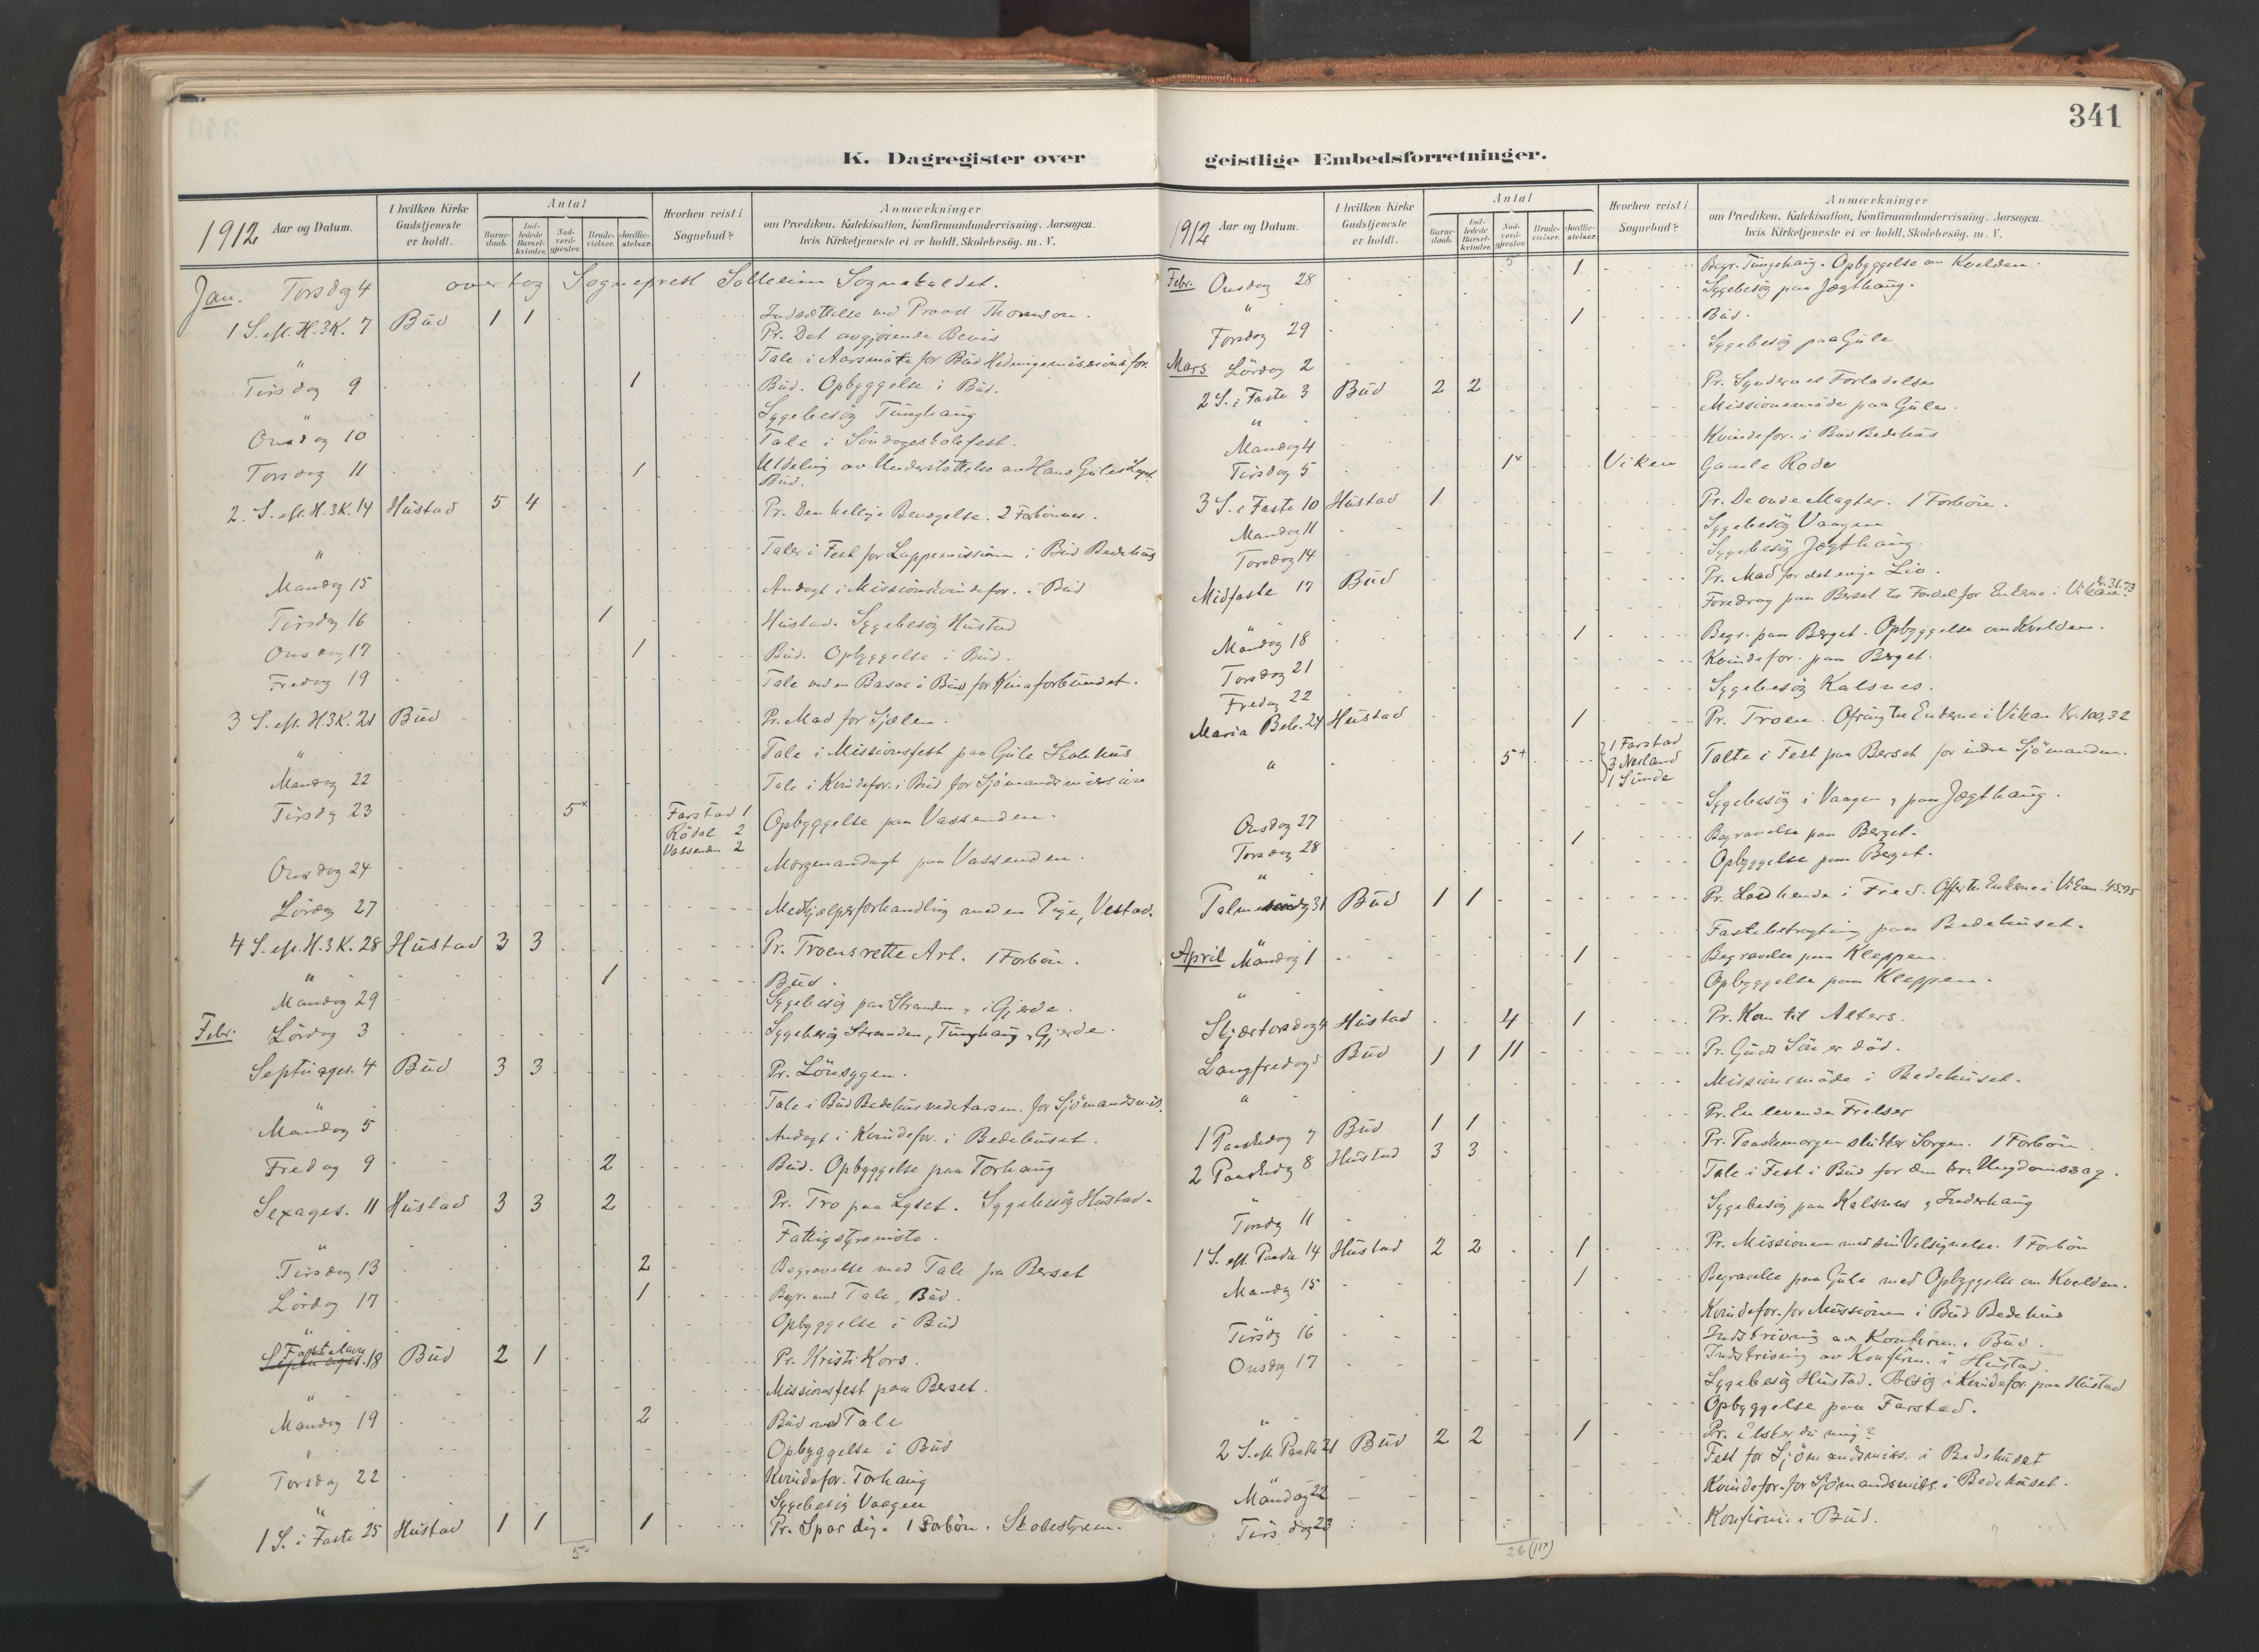 341
K. Dagregister over
geistlige Embedsforretninger.
1912 Aar og Datum.
I hvilken Kirke Gudstjeneste er holdt.
Antal
Barne-daab.
Ind-ledede Barsel-kvinder.
Nad-verd-gjester.
Brude-vielser.
Jordfæ-stelser.
Hvorhen reist i Sognebud?
Anmærkninger
om Prædiken. Katekisation, Konfirmandundervisning. Aarsagen. hvis Kirketjeneste ei er holdt. Skolebesög. m. V.
Jan. Torsdag 4 overtog Sogneprest Solleim Sognekaldet.
1 S. eft. H. 3 K. 7 Bud 1 1 Indsættelse ved Provst Thomson.
Pr. Det avgjörende Bevis
" Tale i Aarsmöte for Bud Hedningemissionsfor.
Tirsdag 9 1 Bud. Opbyggelse i Bud.
" Sygebesög Tunghaug
Onsdag 10 Tale i Söndagsskolefest.
Torsdag 11 1 Utdeling av Understöttelse av Hans Gules Legat.
Bud.
2. S. eft. H. 3 K. 14 Hustad 5 4 Pr. Den hellige Bevægelse. 2 Forbönner.
" Taler i Fest for Lappemissionen i Bud Bedehus
Mandag 15 Andagt i Missionskvindefor. i Bud
Tirsdag 16 1 Hustad. Sygebesög Hustad
Onsdag 17 1 Bud. Opbyggelse i Bud.
Fredag 19 Tale ved en Basar i Bud for Kinaforbundet.
3 S. eft. H 3 K. 21 Bud Pr. Mad for Sjælen.
" Tale i Missionsfest paa Gule Skolehus
Mandag 22 Tale i Kvindefor. i Bud for Sjömandsmissionen
Tirsdag 23 5x Farstad 1 Opbyggelse paa Vassenden.
Rödal 2
Vassenden 2
Onsdag 24 Morgenandagt paa Vassenden.
Lördag 27 Medhjælperforhandling med en Pige, Vestad.
4 S. eft. H. 3 K. 28 Hustad 3 3 Pr. Troens rette Art. 1 Forbön.
" 1 Bud.
Mandag 29 Sygebesög paa Stranden, i Gjerde.
Febr. Lördag 3 Sygebesög Stranden, Tunghaug, Gjerde.
Septuages. 4 Bud 3 3 Pr. Lönsygen.
" Tale i Bud Bedehus ved Aarsm. for Sjömandsmis.
Mandag 5 Andagt i Kvindefor. i Bedehuset.
Fredag 9 2 Bud. Opbyggelse paa Torhaug
Sexages. 11 Hustad 3 3 2 Pr. Tro paa Lyset. Sygebesög Hustad.
" Fattigstyremöte.
Tirsdag 13 2 Begravelse med Tale fra Berset
Lördag 17 1 Begr. med Tale, Bud.
" Opbyggelse i Bud
Fastelavn 18 Bud 2 1 Pr. Kristi Kors.
" Missionsfest paa Berset.
Mandag 19 2 Bud med Tale
" Opbyggelse i Bud
Torsdag 22 Kvindefor. Torhaug
" Sygebesög Vaagen
1 S. i Faste 25 Hustad 1 1 1 Pr. Spar dig. 1 Forbön. Skolestyrem.
5x
1912 Aar og Datum.
I hvilken Kirke Gudstjeneste er holdt.
Antal
Barne-daab.
Ind-ledede Barsel-kvinder.
Nad-verd-gjester.
Brude-vielser.
Jordfæ-stelser.
Hvorhen reist i Sognebud?
Anmærkninger
om Prædiken. Katekisation, Konfirmandundervisning. Aarsagen. hvis Kirketjeneste ei er holdt. Skolebesög. m. V.
5
Febr. Onsdag 28 1 Begr. Tungehaug. Opbyggelse om Kvelden.
" Sygebesög paa Jægthaug.
Torsdag 29 1 Bud.
Mars Lördag 2 Sygebesög paa Gule
2 S. i Faste 3 Bud 2 2 Pr. Syndernes Forladelse
" Missionsmöde paa Gule.
Mandag 4 Kvindefor. i Bud Bedehus
Tirsdag 5 1x Viken Gamle Rode
3 S. i Faste 10 Hustad 1 Pr. De onde Magter. 1 Forbön.
Mandag 11 Sygebesög Vaagen
Torsdag 14 Sygebesög Jægthaug.
Midfaste 17 Bud Pr. Mad for det evige Liv.
" Foredrag paa Berset til Fordel for Enkerne i Vikan Kr. 31.73
Mandag 18 1 Begr. paa Berget. Opbyggelse om Kvelden.
Torsdag 21 Kvindefor. paa Berget.
Fredag 22 Sygebesög Kalsnes.
Maria Beb. 24 Hustad 1 Pr. Troen. Ofring til Enkerne i Vikan Kr. 100,32
" 5+ 1 Farstad Talte i Fest paa Berset for indre Sjömandsm.
3 Neiland
1 Sunde
Onsdag 27 Sygebesög i Vaagen, paa Jægthaug.
Torsdag 28 1 Begravelse paa Berget.
" Opbyggelse paa Berget.
Palmesöndag 31 Bud 1 1 Pr. Lad hende i Fred. Offer til Enkerne i Vikan. 45.95
Fastebetragtning paa Bedehuset.
April Mandag 1 1 Begravelse paa Kleppen.
" Opbyggelse paa Kleppen.
Skjærtorsdag 4 Hustad 4 1 Pr. Kom til Alters.
Langfredag 5 Bud 1 1 11 Pr. Guds Sön er död.
" Missionsmöde i Bedehuset.
1 Paaskedag 7 Bud 1 1 Pr. En levende Frelser
2 Paaskedag 8 Hustad 3 3 Pr. Paaskemorgen slukker Sorgen. 1 Forbön
" Tale i Fest i Bud for den kr. Ungdomssag.
Torsdag 11 Sygebesög paa Kalsnes, Inderhaug
1 S. eft. Paaske 14 Hustad 2 2 1 Pr. Missionen med sin Velsignelse. 1 Forbön
Mandag 15 1 Begravelse paa Gule med Opbyggelse om Kvelden.
" Kvindefor. for Missionen i Bud Bedehus
Tirsdag 16 Indskrivning av Konfirm. i Bud.
Onsdag 17 Indskrivning av Konfirm. i Hustad.
Sygebesög Hustad. Besög i Kvindefor. paa Hustad
" Opbyggelse paa Farstad.
2 S. eft. Paaske 21 Bud 2 2 1 Pr. Elsker du mig?
Fest for Sjömandsmiss. i Bedehuset
Mandag 22 Kvindefor. for Sjömandsmiss. i Bedehuset.
Tirsdag 23 Konfirm. i Bud.
26 (11x)